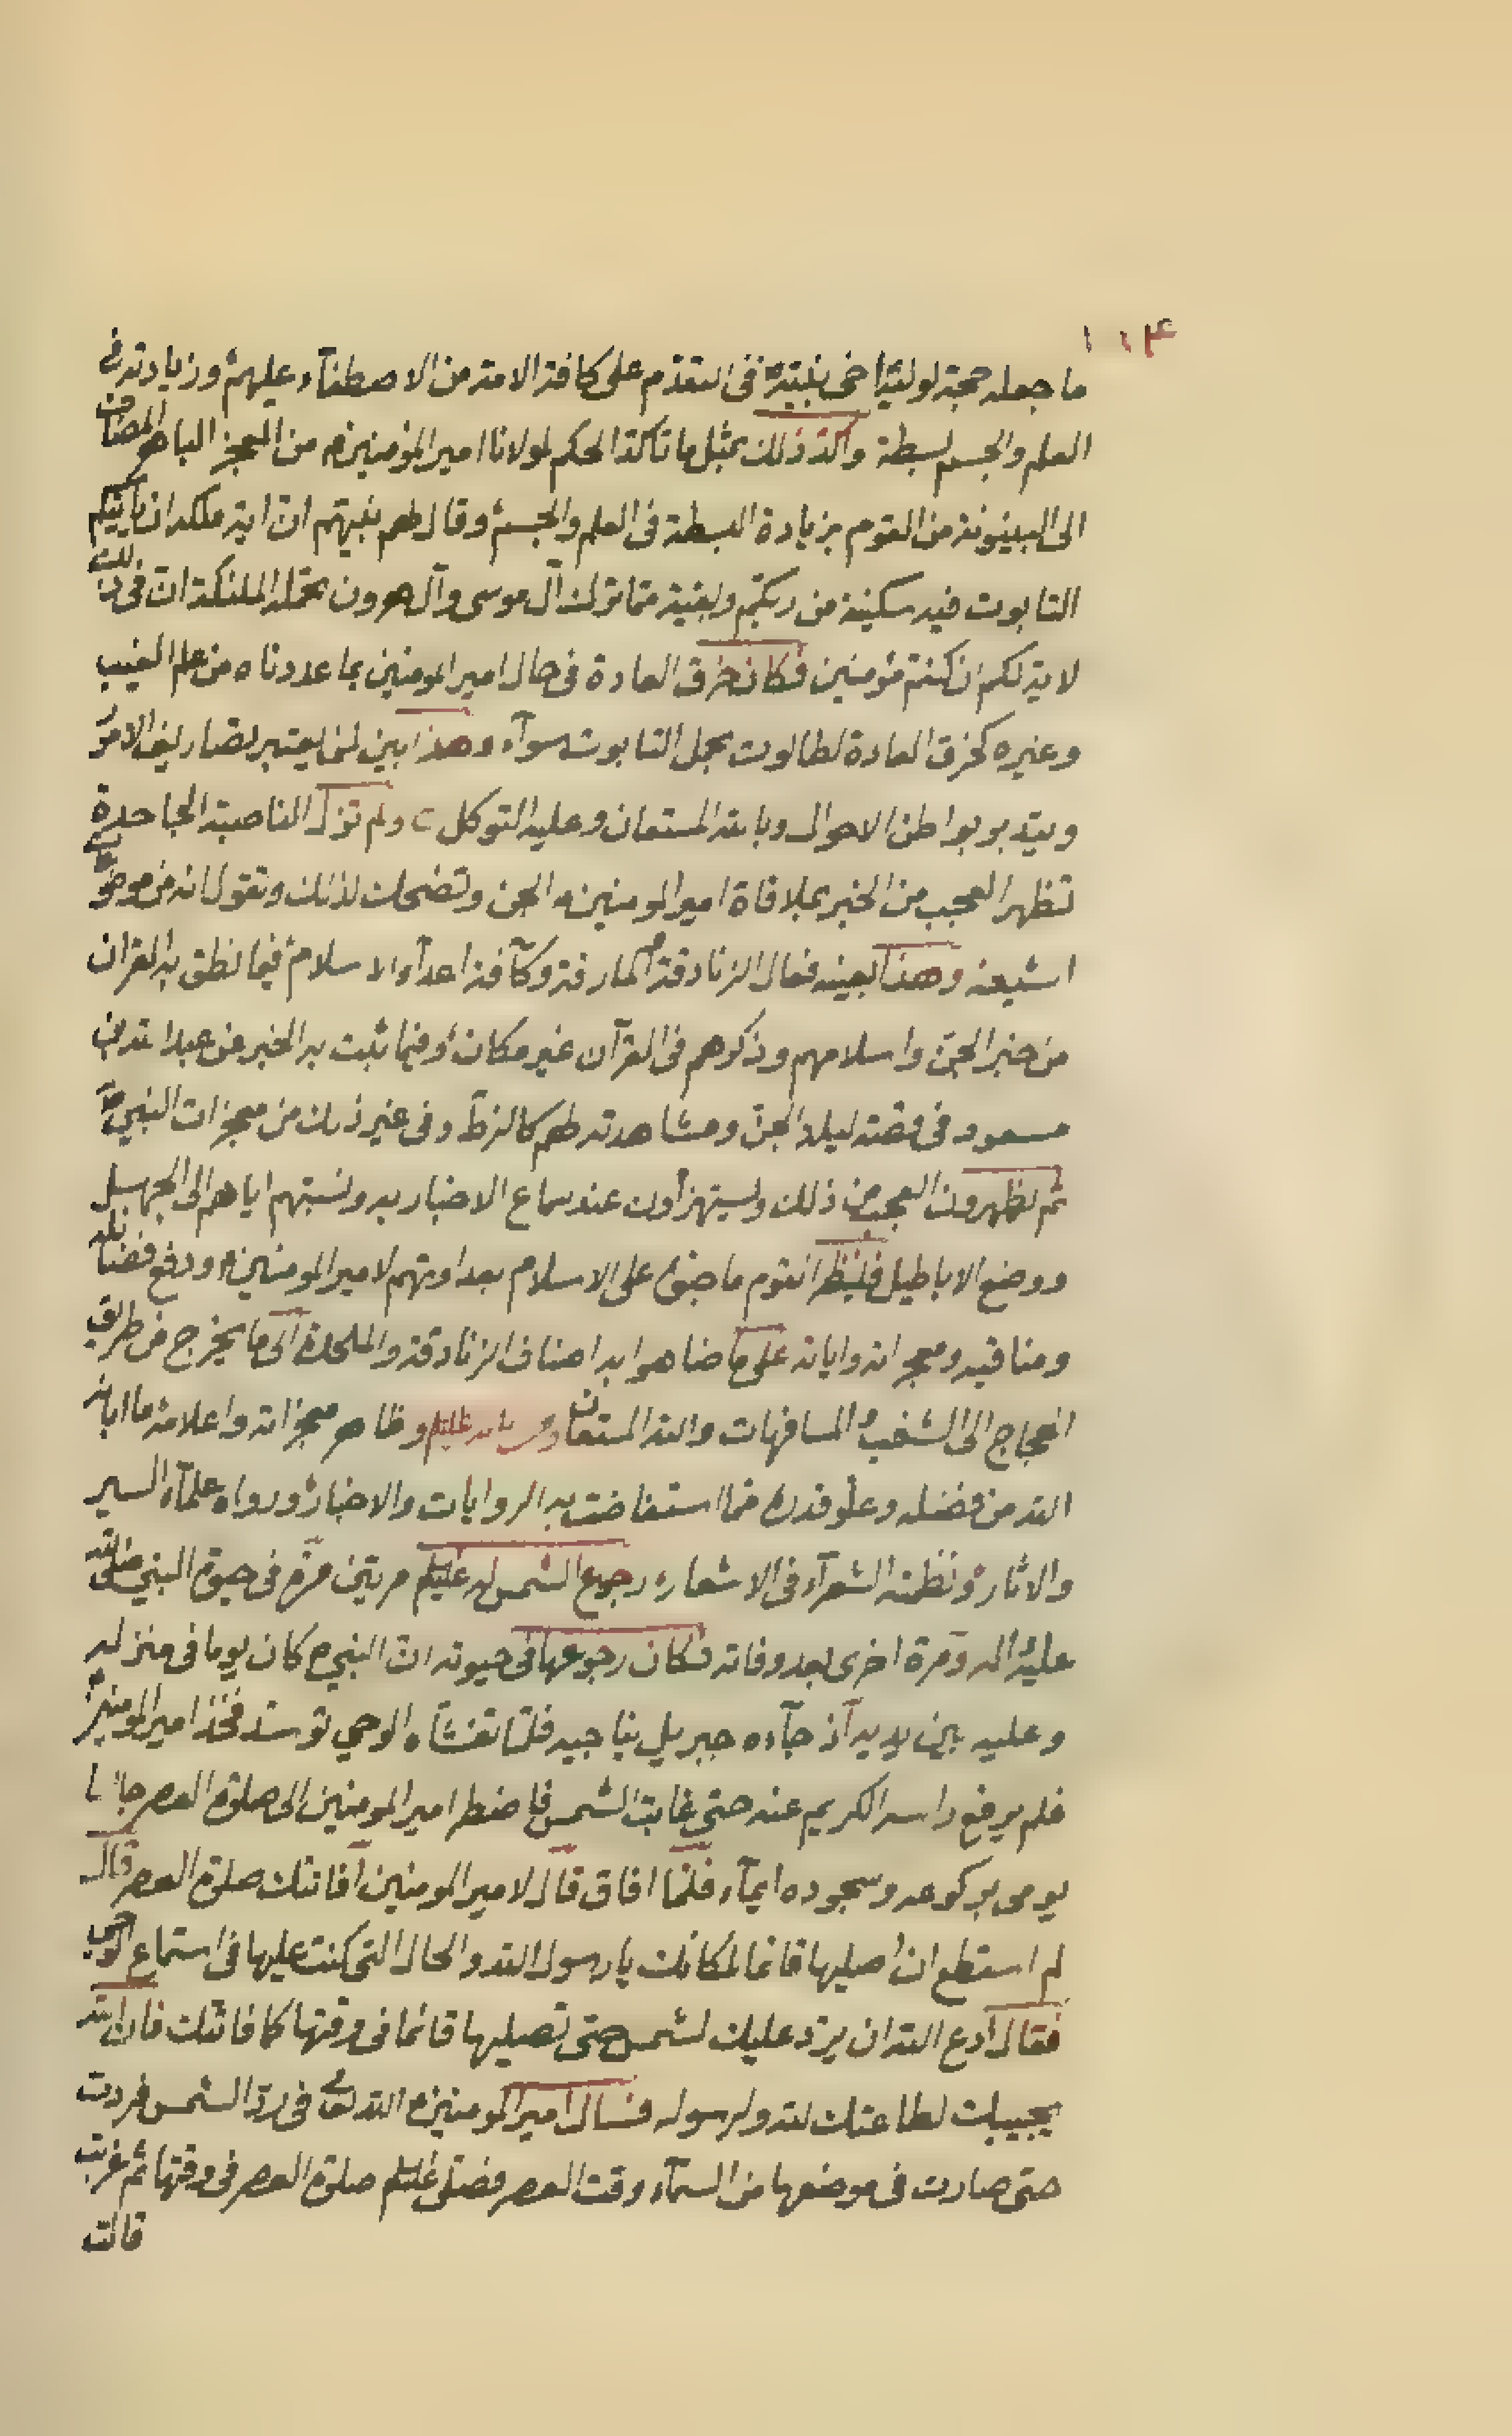 ١١٤
ما جعله حجة لوليه واخى نبيه ص فى التقدم على كافة الامة من الاصطفآء عليهم وزيادته فى
العلم والجسم بسطة واكد ذلك بمثل ما تاكد الحكم لمولانا امير المؤمنين ع من المعجز الباهر المضاف
الى البينونة من القوم بزيادة البسطة فى العلم والجسم وقال لهم نبيهم ان اية ملكه ان ياتيكم
التابوت فيه سكينة من ربكم وبقية مما ترك آل موسى وآل هرون تحمله الملئكة ان فى ذلك
لاية لكم ان كنتم مؤمنين فكان خرق العادة فى حال امير المومنين بما عددناه من علم الغيب
وغيره كخرق العادة لطالوت بحمل التابوت سوآء وهذا بين لمن يعتبر تصاريف الامور
ويتدبر بواطن الاحوال وبالله المستعان وعليه التوكل ولم تزل الناصبة الجاحدة
تظهر العجب من الخبر بملاقاة امير المومنين ع الجن وتضحك لذلك وتقول انه من موضوعات
الشيعة وهذا بعينه فعال الزنادقة المارقة وكآفة اعدآء الاسلام فيما نطق به القران
من خبر الجن واسلامهم وذكرهم فى القرآن غير مكان وفيما ثبت به الخبر عن عبد الله بن
مسعود فى قصة ليلة الجن ومشاهدته لهم كالزط وفى غير ذلك من معجزات النبي ص
ثم يظهرون العجب من ذلك ويستهزأون عند سماع الاخبار به ونسبتهم اياهم الى الجهل
ووضع الاباطيل فلينظر القوم ما جنوا على الاسلام بعداوتهم لامير المومنين ع ودفع فضائله
ومناقبه ومعجزاته واياته على ما ضاهوا به اصناف الزنادقة والملحدة الى ما يخرج عن طريق
الحجاج الى الشغب والمسافهات والله المستعان ومن اياته عليلم وظاهر معجزاته واعلامه ما ابانه
الله من فضله وعلو قدره مما استفاضت به الروايات والاخبار ورواه علمآء السير
والاثار ونظمته الشعرآء فى الاشعار رجوع الشمس له عليلم مرتين مرة فى حيوة النبي صلى الله
عليه وآله ومرة اخرى بعد وفاته فكان رجوعها فى حيوته ان النبي ص كان يوما فى منزله
وعلي بين يديه اذ جآءه جبريل يناجيه فلما تغشاه الوحي توسد فخذ امير المومنين ع
فلم يرفع راسه الكريم عنه حتى غابت الشمس فاضطر امير المومنين الى صلوة العصر جالسا
يومى بركوعه وسجوده ايمآء فلما افاق قال لامير المومنين أفاتتك صلوة العصر قال
لم استطع ان اصليها قائما لمكانك يا رسول الله والحال التى كنت عليها فى استماع الوحى
فقال ادع الله ان يرد عليك لشمس حتى تصليها قائما فى وقتها كما فاتتك فان الله
يجيبك لطاعتك لله ولرسوله فسال امير المومنين ع الله تعالى فى رد الشمس فردت
حتى صارت فى موضعها من السمآء وقت العصر فصلى عليلم صلوة العصر فى وقتها ثم غربت
قالت